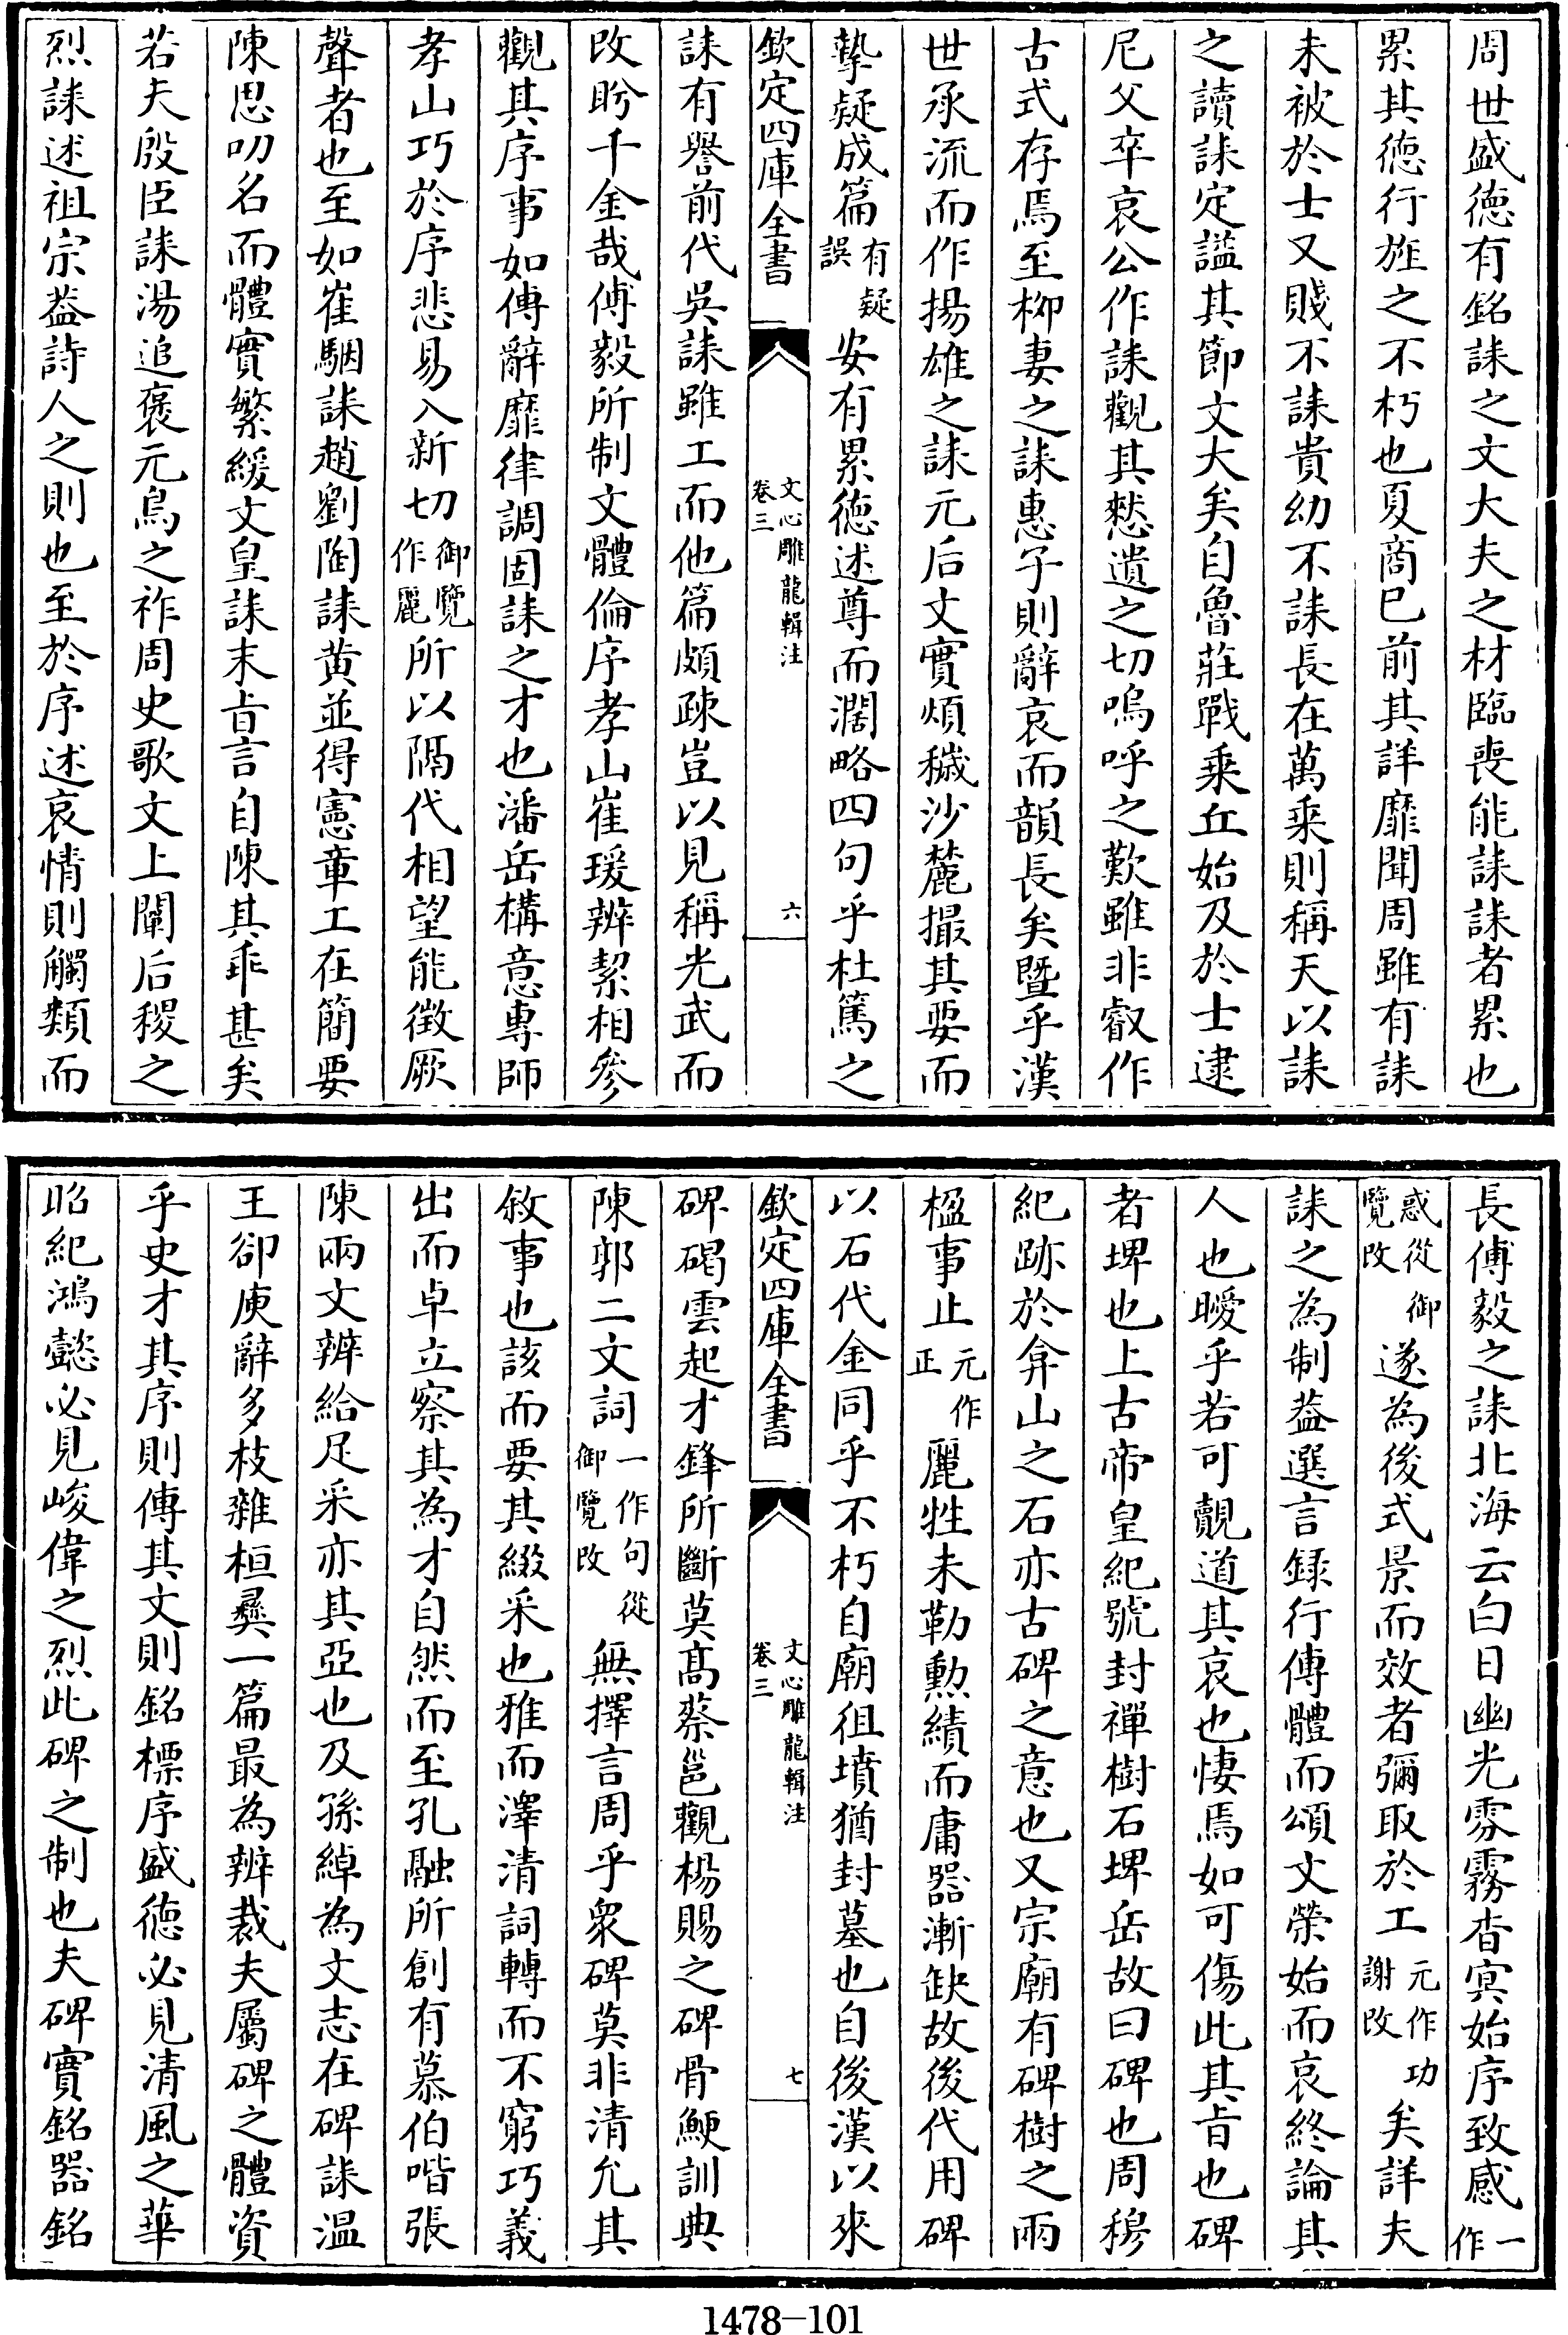 周世盛德有銘誄之文大夫之材臨喪能誄誄者累也
累其德行旌之不朽也夏商巳前其詳靡聞周雖有誄
未被於士又賤不誄貴幼不誄長在萬乘則稱天以誄
之讀誄定諡其節文大矣自魯莊戰乘丘始及於士逮
尼父卒哀公作誄觀其憖遺之切嗚呼之歎雖非叡作
古式存焉至栁妻之誄惠子則辭哀而韻長矣暨乎漢
世承流而作揚雄之誄元后文實煩穢沙麓撮其要而
摯疑成篇有疑誤安有累德述尊而濶略四句乎杜篤之
欽定四庫全書 文心雕龍輯注 卷三 六
誄有譽前代吳誄雖工而他篇頗疎豈以見稱光武而
改盻千金哉傅毅所制文體倫序孝山崔瑗辨絜相參
觀其序事如傳辭靡律調固誄之才也潘岳構意專師
孝山巧於序悲易入新切御覽作麗所以隔代相望能徴厥
聲者也至如崔駰誄趙劉陶誄黄並得憲章工在簡要
陳思叨名而體實繁緩文皇誄末㫖言自陳其乖甚矣
若夫殷臣誄湯追褒元鳥之祚周史歌文上闡后稷之
烈誄述祖宗葢詩人之則也至於序述哀情則觸類而
長傅毅之誄北海云白日幽光雰霧杳冥始序致感一作
惑從御覽改遂為後式景而效者彌取於工元作功謝改矣詳夫
誄之為制葢選言録行傳體而頌文榮始而哀終論其
人也曖乎若可覿道其哀也悽焉如可傷此其㫖也碑
者埤也上古帝皇紀號封禪樹石埤岳故曰碑也周穆
紀跡於弇山之石亦古碑之意也又宗廟有碑樹之兩
楹事止元作正麗牲未勒勲績而庸器漸缺故後代用碑
以石代金同乎不朽自廟徂墳猶封墓也自後漢以來
欽定四庫全書 文心雕龍輯注 卷三 七
碑碣雲起才鋒所斷莫髙蔡邕觀楊賜之碑骨鯁訓典
陳郭二文詞一作句從御覽改無擇言周乎衆碑莫非清允其
敘事也該而要其綴采也雅而澤清詞轉而不窮巧義
出而卓立察其為才自然而至孔融所創有慕伯喈張
陳兩文辨給足采亦其亞也及孫綽為文志在碑誄溫
王郤庾辭多枝雜桓彞一篇最為辨裁夫屬碑之體資
乎史才其序則傳其文則銘標序盛德必見清風之華
昭紀鴻懿必見峻偉之烈此碑之制也夫碑實銘器銘
1478-101